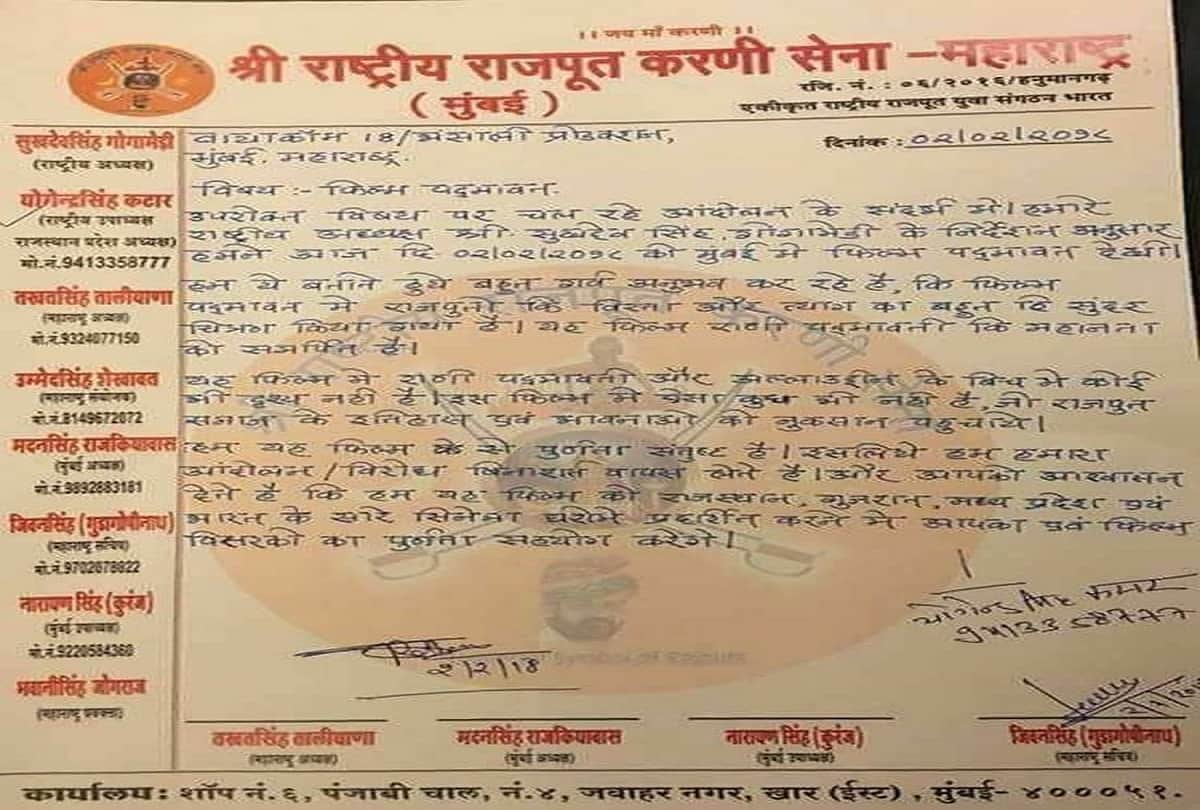 ।। जय माँ करणी ।।
श्री राष्ट्रीय राजपूत करणी सेना -महाराष्ट्र
( मुंबई )
रजि. नं. : ०६/२०१६/हनुमानगढ़
एकीकृत राष्ट्रीय राजपूत युवा संगठन भारत
दिनांक : ०२/०२/२०१८
सुखदेवसिंह गोगामेड़ी
(राष्ट्रीय अध्यक्ष)
योगेन्द्रसिंह कटार
(राष्ट्रीय उपाध्यक्ष
राजस्थान प्रदेश अध्यक्ष)
मो.नं.9413358777
तखतसिंह तालीयाणा
(महाराष्ट्र अध्यक्ष)
मो.नं.9324077150
उम्मेदसिंह शेखावत
(महाराष्ट्र संयोजक)
मो.नं.8149672072
मदनसिंह राजकियावास
(मुंबई अध्यक्ष)
मो.नं.9892883181
जिवनसिंह (गुडागोपीनाथ)
(महाराष्ट्र सचिव)
मो.नं.9702678822
नारायण सिंह (कुरंज)
(मुंबई उपाध्यक्ष)
मो.नं.9220584360
भवानीसिंह जोगराज
(महाराष्ट्र प्रवक्ता)
वायाकॉम 18/भंसाली प्रोडक्शन,
मुंबई. महाराष्ट्र.
विषय :- फिल्म पद्मावन.
उपरोक्त विषय पर चल रहे आंदोलन के संदर्भ मे। हमारे
राष्ट्रीय अध्यक्ष श्री सुखदेव सिंह गोगामेडी के निर्देशन अनुसार
हमने आज दि ०२/०२/२०१८ को मुंबई मे फिल्म पद्मावन देखी।
हम ये बताने हुये बहुत गर्व अनुभव कर रहे है, कि फिल्म
पद्मावन मे राजपुतो कि विरता और त्याग का बहुत हि सुंदर
चित्रण किया गया है। यह फिल्म राणी पद्मावती कि महानता
को समर्पित है।
यह फिल्म मे राणी पद्मावती और अल्लाउद्दीन के बिच मे कोई
भी दृश्य नही है। इस फिल्म मे ऐसा कुछ भी नही है, जो राजपुत
समाज के इतिहास एवं भावनाओ को नुकसान पहुचाये।
हम यह फिल्म से पुर्णता संतुष्ट है। इसलिये हम हमारा
आंदोलन/विरोध बिनाशर्त वापस लेते है। और आपको आश्वासन
देते है कि हम यह फिल्म को राजस्थान, गुजरात, मध्य प्रदेश एवं
भारत के सारे सिनेमा घरोमे प्रदर्शित करने मे आपका एवं फिल्म
वितरको का पुर्णता सहयोग करेंगे।
2/2/18
योगेन्द्र सिंह कटार
9413358777
तखतसिंह तालीयाणा
(महाराष्ट्र अध्यक्ष)
मदनसिंह राजकियावास
(मुंबई अध्यक्ष)
नारायण सिंह (कुरंज)
(मुंबई उपाध्यक्ष)
जिवनसिंह (गुडागोपीनाथ)
(महाराष्ट्र सचिव)
कार्यालय: शॉप नं.६, पंजाबी चाल, नं.४, जवाहर नगर, खार (ईस्ट) , मुंबई- ४०००५१.